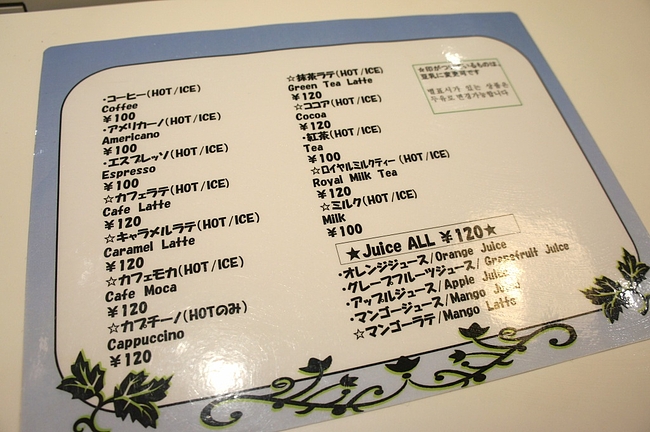 ・コーヒー(HOT/ICE)
Coffee
￥100
・アメリカーノ(HOT/ICE)
Americano
￥100
・エスプレッソ(HOT/ICE)
Espresso
￥100
☆カフェラテ(HOT/ICE)
Cafe Latte
￥120
☆キャラメルラテ(HOT/ICE)
Caramel Latte
￥120
☆カフェモカ(HOT/ICE)
Cafe Moca
￥120
☆カプチーノ(HOTのみ)
Cappuccino
￥120
☆抹茶ラテ(HOT/ICE)
Green Tea Latte
￥120
☆ココア(HOT/ICE)
Cocoa
￥120
・紅茶(HOT/ICE)
Tea
￥100
☆ロイヤルミルクティー(HOT/ICE)
Royal Milk Tea
￥120
☆ミルク(HOT/ICE)
Milk
￥100
★Juice ALL ￥120★
・オレンジジュース/Orange Juice
・グレープフルーツジュース/Grapefruit Juice
・アップルジュース/Apple Juice
・マンゴージュース/Mango Juice
☆マンゴーラテ/Mango Latte
☆印がついているものは、
豆乳に変更可です
별표시가 있는 상품은
두유로 변경가능합니다